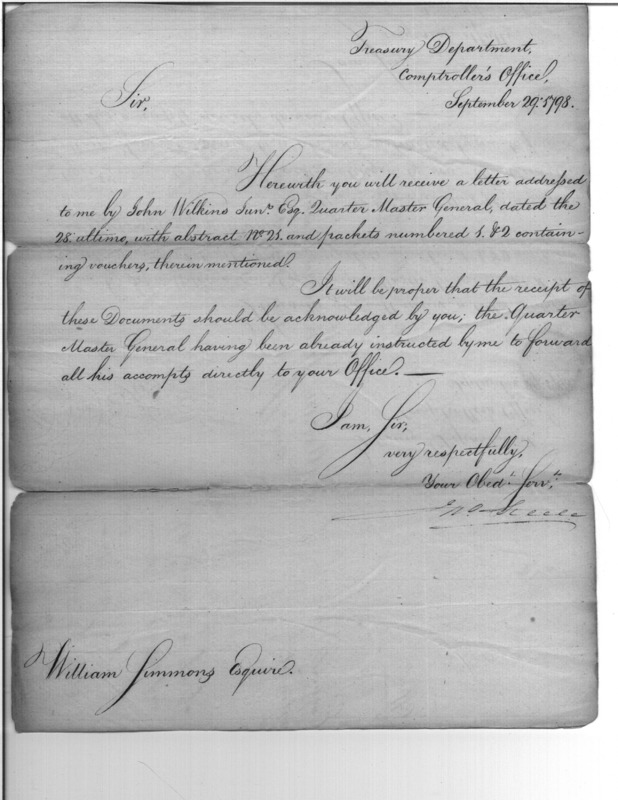 Treasury Department,
Comptroller's Office,
September 29th 1798.
Sir,
Herewith you will receive a letter addressed
to me by John Wilkins Junr. Esq. Quarter Master General, dated the
28 ultimo, with abstract No. 21. and packets numbered 1. & 2 contain-
ing vouchers, therein mentioned.
It will be proper that the receipt of
these Documents should be acknowledged by you; the Quarter
Master General having been already instructed by me to forward
all his accompts directly to your Office. —
I am, Sir,
very respectfully,
Your Obedt. Servt.
Jno. Steele
William Simmons Esquire.